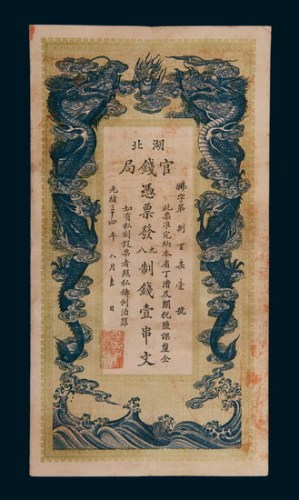 湖北
官錢局
憑票發九八制錢壹串文
字第捌百柒壹號
此票准完納本省丁漕及關稅鹽課釐金
如有私刻假票者照私鑄例治罪
光緒二十四年八月 日